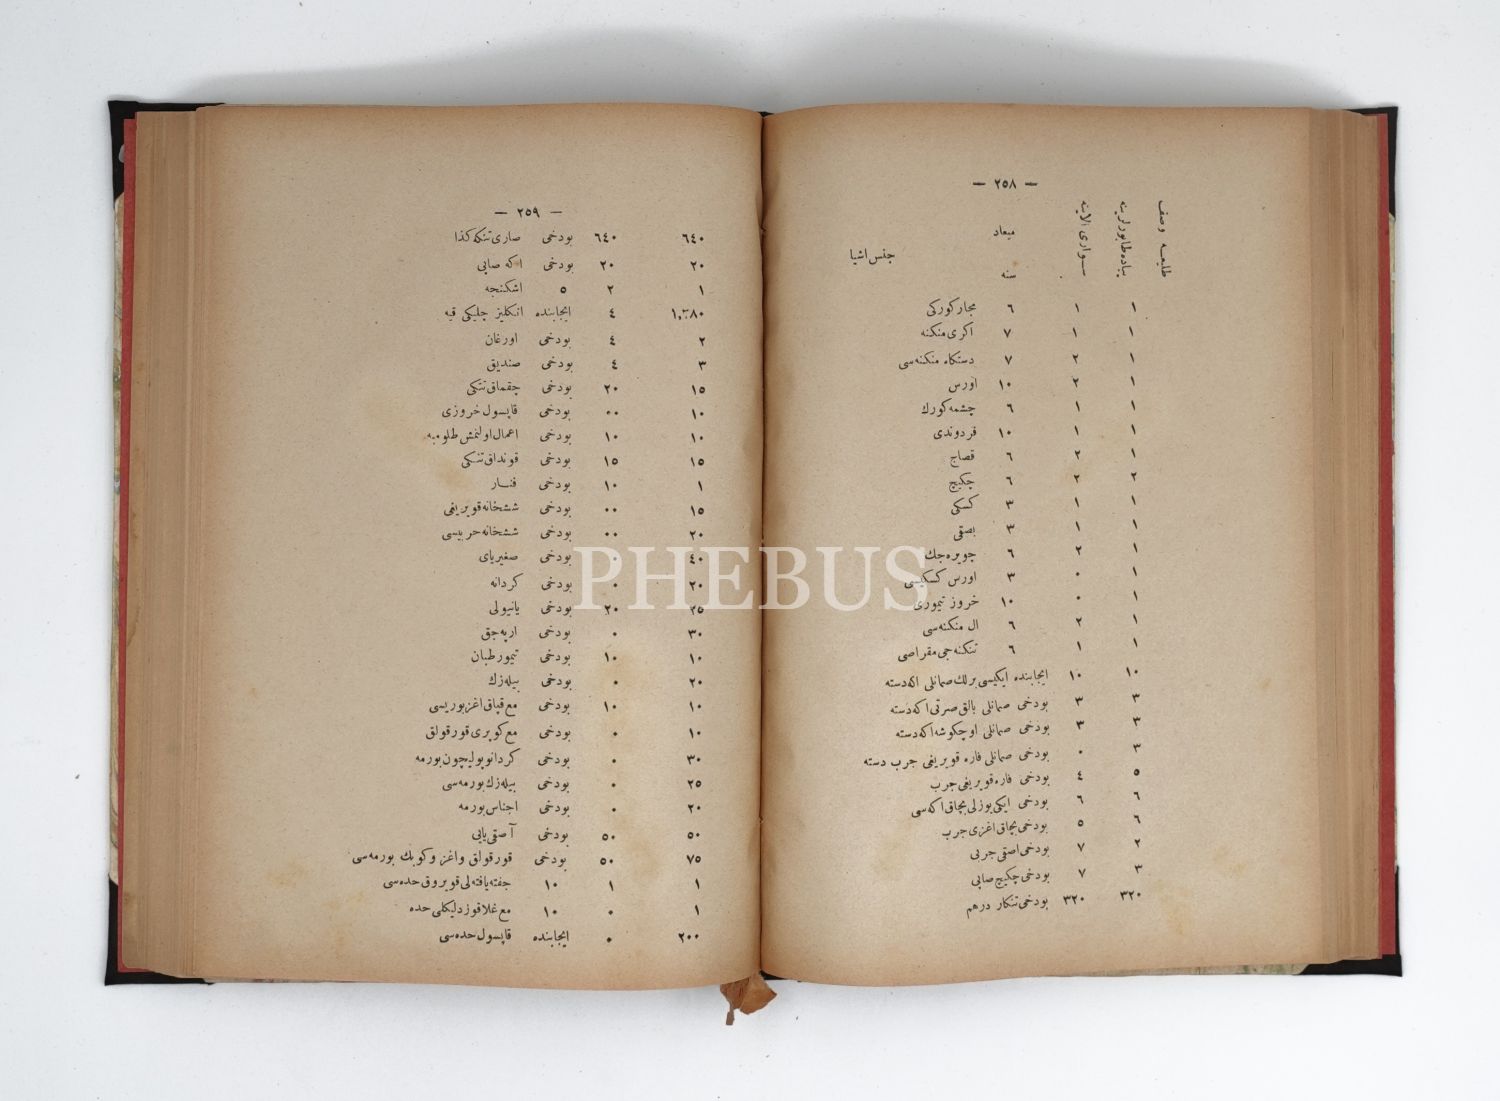 — ٢٥٨ —
طليعه وصف
پياده طابورلرينه
سوارى الاينه
ميعاد
سنه
جنس اشيا
١ ١ ٦ مجار كوركى
١ ١ ٧ اكرى منكنه
١ ٢ ٧ دستكاه منكنه سى
١ ٢ ١٠ اورس
١ ١ ٦ چشمه كورك
١ ١ ١٠ فردوندى
١ ٢ ٦ قصاج
٢ ٢ ٦ چكيچ
١ ١ ٣ كسكى
١ ١ ٣ بصقى
١ ٢ ٦ چويره جك
١ ٠ ٣ اورس كسكيسى
١ ٠ ١٠ خروز تيمورى
١ ٢ ٦ ال منكنه سى
١ ١ ٦ تنكنه جى مقراصى
١٠ ١٠ ايجابنده ايكيسى برلك صمانلى اكه دسته
٣ ٣ بودخى صمانلى بالق صرتى اكه دسته
٣ ٣ بودخى صمانلى اوچكوشه اكه دسته
٣ ٠ بودخى صمانلى فاره قويريغى جرب دسته
٥ ٤ بودخى فاره قويريغى جرب
٦ ٦ بودخى ايكى يوزلى بچاق اكه سى
٦ ٥ بودخى بچاق اغزى جرب
٢ ٧ بودخى اصقى جربى
٣ ٧ بودخى چكيچ صاپى
٣٢٠ ٣٢٠ بودخى تنكار درهم
— ٢٥٩ —
٦٤٠ ٦٤٠ بودخى صارى تنكه كذا
٢٠ ٢٠ بودخى اكه صاپى
١ ٢ ٥ اشكنجه
١,٢٨٠ ٤ ايجابنده انكليز چليكى قيه
٢ ٤ بودخى اورغان
٣ ٤ بودخى صنديق
١٥ ٢٠ بودخى چقماق تتكى
١٠ ٠٠ بودخى قاپسول خروزى
١٠ ١٠ بودخى اعمال اولنمش طلومبه
١٥ ١٥ بودخى قونداق تتكى
١ ١٠ بودخى فنار
١٥ ٠٠ بودخى ششخانه قويريغى
٢٠ ٠٠ بودخى ششخانه حربيسى
٤٠ ٠ بودخى صغيرياى
٢٠ ٠ بودخى كردانه
٢٥ ٢٠ بودخى يانيولى
٣٠ ٠ بودخى ارپه جق
١٠ ١٠ بودخى تيمور طبان
٢٠ ٠ بودخى بيله زك
١٠ ١٠ بودخى مع قپاق اغز بوريسى
١٠ ٠ بودخى مع كوپرى قورقولق
٣٠ ٠ بودخى كردانويوليچون بورمه
٢٥ ٠ بودخى بيله زك بورمه سى
٢٠ ٠ بودخى اجناس بورمه
٥٠ ٥٠ بودخى آصقى يايى
٧٥ ٥٠ بودخى قورقولق واغز وكوبك بورمه سى
١ ١ ١٠ جفته يافته لى قويروق حده سى
١ ٠ ١٠ مع غلاقوز دليكلى حده
٢٠٠ ٠ ايجابنده قاپسول حده سى
PHEBUS